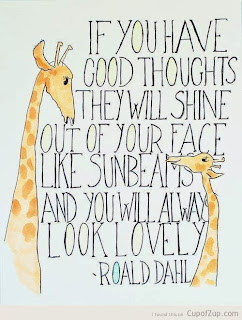 IF YOU HAVE
GOOD THOUGHTS
THEY WILL SHINE
OUT OF YOUR FACE
LIKE SUNBEAMS
AND YOU WILL ALWAY
LOOK LOVELY
-ROALD DAHL
CupofZup.com